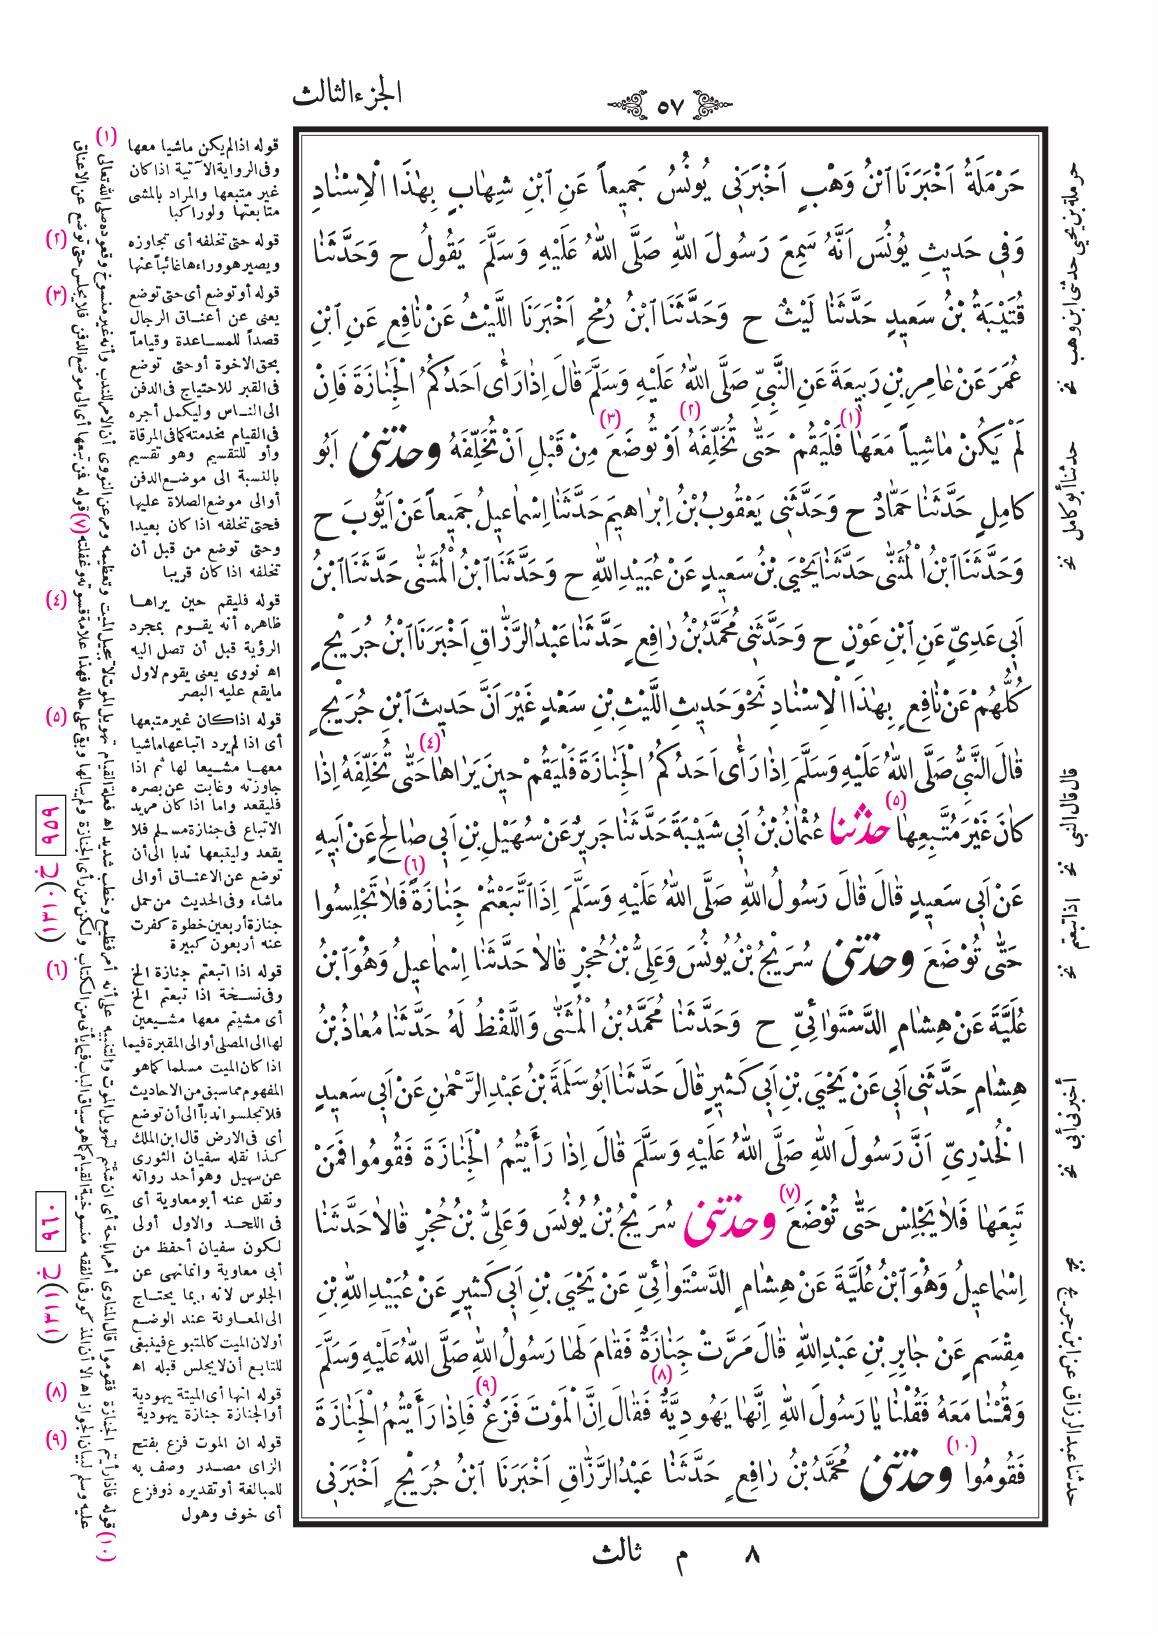 الجزء الثالث
٥٧
حَرْمَلَةُ اَخْبَرَنَا ابْنُ وَهْبٍ اَخْبَرَنِى يُونُسُ جَمِيعاً عَنِ ابْنِ شِهَابٍ بِهٰذَا الْاِسْنَادِ
وَفِى حَديثِ يُونُسَ اَنَّهُ سَمِعَ رَسُولَ اللهِ صَلَّى اللهُ عَلَيْهِ وَسَلَّمَ يَقُولُ ح وَحَدَّثَنَا
قُتَيْبَةُ بْنُ سَعيدٍ حَدَّثَنَا لَيْثٌ ح وَحَدَّثَنَا ابْنُ رُمْحٍ اَخْبَرَنَا اللَّيْثُ عَنْ نَافِعٍ عَنِ ابْنِ
عُمَرَ عَنْ عَامِرِ بْنِ رَبيعَةَ عَنِ النَّبِىِّ صَلَّى اللهُ عَلَيْهِ وَسَلَّمَ قَالَ اِذَا رَأٰى اَحَدُكُمُ الْجَنَازَةَ فَاِنْ
لَمْ يَكُنْ مَاشِياً مَعَهَا (١) فَلْيَقُمْ حَتّٰى تُخَلِّفَهُ (٢) اَوْ تُوضَعَ (٣) مِنْ قَبْلِ اَنْ تُخَلِّفَهُ وحَدَّثَنِى اَبُو
كَامِلٍ حَدَّثَنَا حَمَّادٌ ح وَحَدَّثَنِى يَعْقُوبُ بْنُ اِبْرَاهِيمَ حَدَّثَنَا اِسْمَاعِيلُ جَمِيعاً عَنْ اَيُّوبَ ح
وَحَدَّثَنَا ابْنُ الْمُثَنّٰى حَدَّثَنَا يَحْيَى بْنُ سَعيدٍ عَنْ عُبَيْدِ اللهِ ح وَحَدَّثَنَا ابْنُ الْمُثَنّٰى حَدَّثَنَا ابْنُ
اَبِى عَدِىٍّ عَنِ ابْنِ عَوْنٍ ح وَحَدَّثَنِى مُحَمَّدُ بْنُ رَافِعٍ حَدَّثَنَا عَبْدُ الرَّزَّاقِ اَخْبَرَنَا ابْنُ جُرَيْجٍ
كُلُّهُمْ عَنْ نَافِعٍ بِهٰذَا الْاِسْنَادِ نَحْوَ حَديثِ اللَّيْثِ بْنِ سَعْدٍ غَيْرَ اَنَّ حَديثَ ابْنِ جُرَيْجٍ
قَالَ النَّبِىُّ صَلَّى اللهُ عَلَيْهِ وَسَلَّمَ اِذَا رَأٰى اَحَدُكُمُ الْجَنَازَةَ فَلْيَقُمْ حينَ يَرَاهَا (٤) حَتّٰى تُخَلِّفَهُ اِذَا
كَانَ غَيْرَ مُتَّبِعِهَا (٥) حَدَّثَنَا عُثْمَانُ بْنُ اَبِى شَيْبَةَ حَدَّثَنَا جَريرٌ عَنْ سُهَيْلِ بْنِ اَبِى صَالِحٍ عَنْ اَبِيهِ
عَنْ اَبِى سَعيدٍ قَالَ قَالَ رَسُولُ اللهِ صَلَّى اللهُ عَلَيْهِ وَسَلَّمَ اِذَا اتَّبَعْتُمْ جَنَازَةً (٦) فَلَا تَجْلِسُوا
حَتّٰى تُوْضَعَ وحَدَّثَنِى سُرَيْجُ بْنُ يُونُسَ وَعَلِىُّ بْنُ حُجْرٍ قَالَا حَدَّثَنَا اِسْمَاعِيلُ وَهُوَ ابْنُ
عُلَيَّةَ عَنْ هِشَامٍ الدَّسْتَوَائِىِّ ح وَحَدَّثَنَا مُحَمَّدُ بْنُ الْمُثَنّٰى وَاللَّفْظُ لَهُ حَدَّثَنَا مُعَاذُ بْنُ
هِشَامٍ حَدَّثَنِى اَبِى عَنْ يَحْيَى بْنِ اَبِى كَثيرٍ قَالَ حَدَّثَنَا اَبُو سَلَمَةَ بْنُ عَبْدِ الرَّحْمٰنِ عَنْ اَبِى سَعيدٍ
الْخُدْرِىِّ اَنَّ رَسُولَ اللهِ صَلَّى اللهُ عَلَيْهِ وَسَلَّمَ قَالَ اِذَا رَأَيْتُمُ الْجَنَازَةَ فَقُومُوا فَمَنْ
تَبِعَهَا فَلَا يَجْلِسْ حَتّٰى تُوْضَعَ (٧) وحَدَّثَنِى سُرَيْجُ بْنُ يُونُسَ وَعَلِىُّ بْنُ حُجْرٍ قَالَا حَدَّثَنَا
اِسْمَاعِيلُ وَهُوَ ابْنُ عُلَيَّةَ عَنْ هِشَامٍ الدَّسْتَوَائِىِّ عَنْ يَحْيَى بْنِ اَبِى كَثيرٍ عَنْ عُبَيْدِ اللهِ بْنِ
مِقْسَمٍ عَنْ جَابِرِ بْنِ عَبْدِ اللهِ قَالَ مَرَّتْ جَنَازَةٌ فَقَامَ لَهَا رَسُولُ اللهِ صَلَّى اللهُ عَلَيْهِ وَسَلَّمَ
وَقُمْنَا مَعَهُ فَقُلْنَا يَا رَسُولَ اللهِ اِنَّهَا يَهُودِيَّةٌ (٨) فَقَالَ اِنَّ الْمَوْتَ فَزَعٌ (٩) فَاِذَا رَأَيْتُمُ الْجَنَازَةَ
فَقُومُوا (١٠) وحَدَّثَنِى مُحَمَّدُ بْنُ رَافِعٍ حَدَّثَنَا عَبْدُ الرَّزَّاقِ اَخْبَرَنَا ابْنُ جُرَيْجٍ اَخْبَرَنِى
٨ م ثالث
حرملة بن يحيى حدثنى ابن وهب نخ
حدثنا أبو كامل نخ
قال قال النبى نخ
اذا تبعتم نخ
أخبرنى أبى نخ
حدثنا عبد الرزاق عن ابن جريج نخ
(١) قوله اذا لم يكن ماشيا معها
وفى الرواية الآتية اذا كان
غير متبعها والمراد بالمشى
متابعتها ولو راكبا
(٢) قوله حتى تخلفه أى تجاوزه
ويصير هو وراءها غائباً عنها
(٣) قوله أو توضع أى حتى توضع
يعنى عن أعناق الرجال
قصداً للمساعدة وقياماً
بحق الاخوة أو حتى توضع
فى القبر للاحتياج فى الدفن
الى الناس وليكمل أجره
فى القيام بخدمته كما فى المرقاة
وأو للتقسيم وهو تقسيم
بالنسبة الى موضع الدفن
أو الى موضع الصلاة عليها
فحتى تخلفه اذا كان بعيدا
وحتى توضع من قبل أن
تخلفه اذا كان قريبا
(٤) قوله فليقم حين يراها
ظاهره أنه يقوم بمجرد
الرؤية قبل أن تصل اليه
اه نووى يعنى يقوم لاول
ما يقع عليه البصر
(٥) قوله اذا كان غير متبعها
أى اذا لم يرد اتباعها ماشيا
معها مشيعا لها ثم اذا
جاوزته وغابت عن بصره
فليقعد واما اذا كان مريد
الاتباع فى جنازة مسلم فلا
يقعد وليتبعها ندبا الى أن
توضع عن الاعناق أو الى
ماشاء وفى الحديث من حمل
جنازة أربعين خطوة كفرت
عنه أربعون كبيرة
(٦) قوله اذا اتبعتم جنازة الخ
وفى نسخة اذا تبعتم الخ
أى مشيتم معها مشيعين
لها الى المصلى أو الى المقبرة فيما
اذا كان الميت مسلما كما هو
المفهوم مما سبق من الاحاديث
فلا تجلسوا ندباً الى أن توضع
أى فى الارض قال ابن الملك
كذا نقله سفيان الثورى
عن سهيل وهو أحد رواته
ونقل عنه أبو معاوية أى
فى اللحد والاول أولى
لكون سفيان أحفظ من
أبى معاوية وانما نهى عن
الجلوس لأنه ربما يحتاج
الى المعاونة عند الوضع
أو لان الميت كالمتبوع فينبغى
للتابع أن لا يجلس قبله اه
(٨) قوله انها أى الميتة يهودية
أو الجنازة جنازة يهودية
(٩) قوله ان الموت فزع بفتح
الزاى مصدر وصف به
للمبالغة أو تقديره ذو فزع
أى خوف وهول
(١٠) قوله فاذا رأيتم الجنازة فقوموا
(٧) قوله فمن تبعها
٩٥٩
ج(١٣١٠)
٩٦٠
ج(١٣١١)